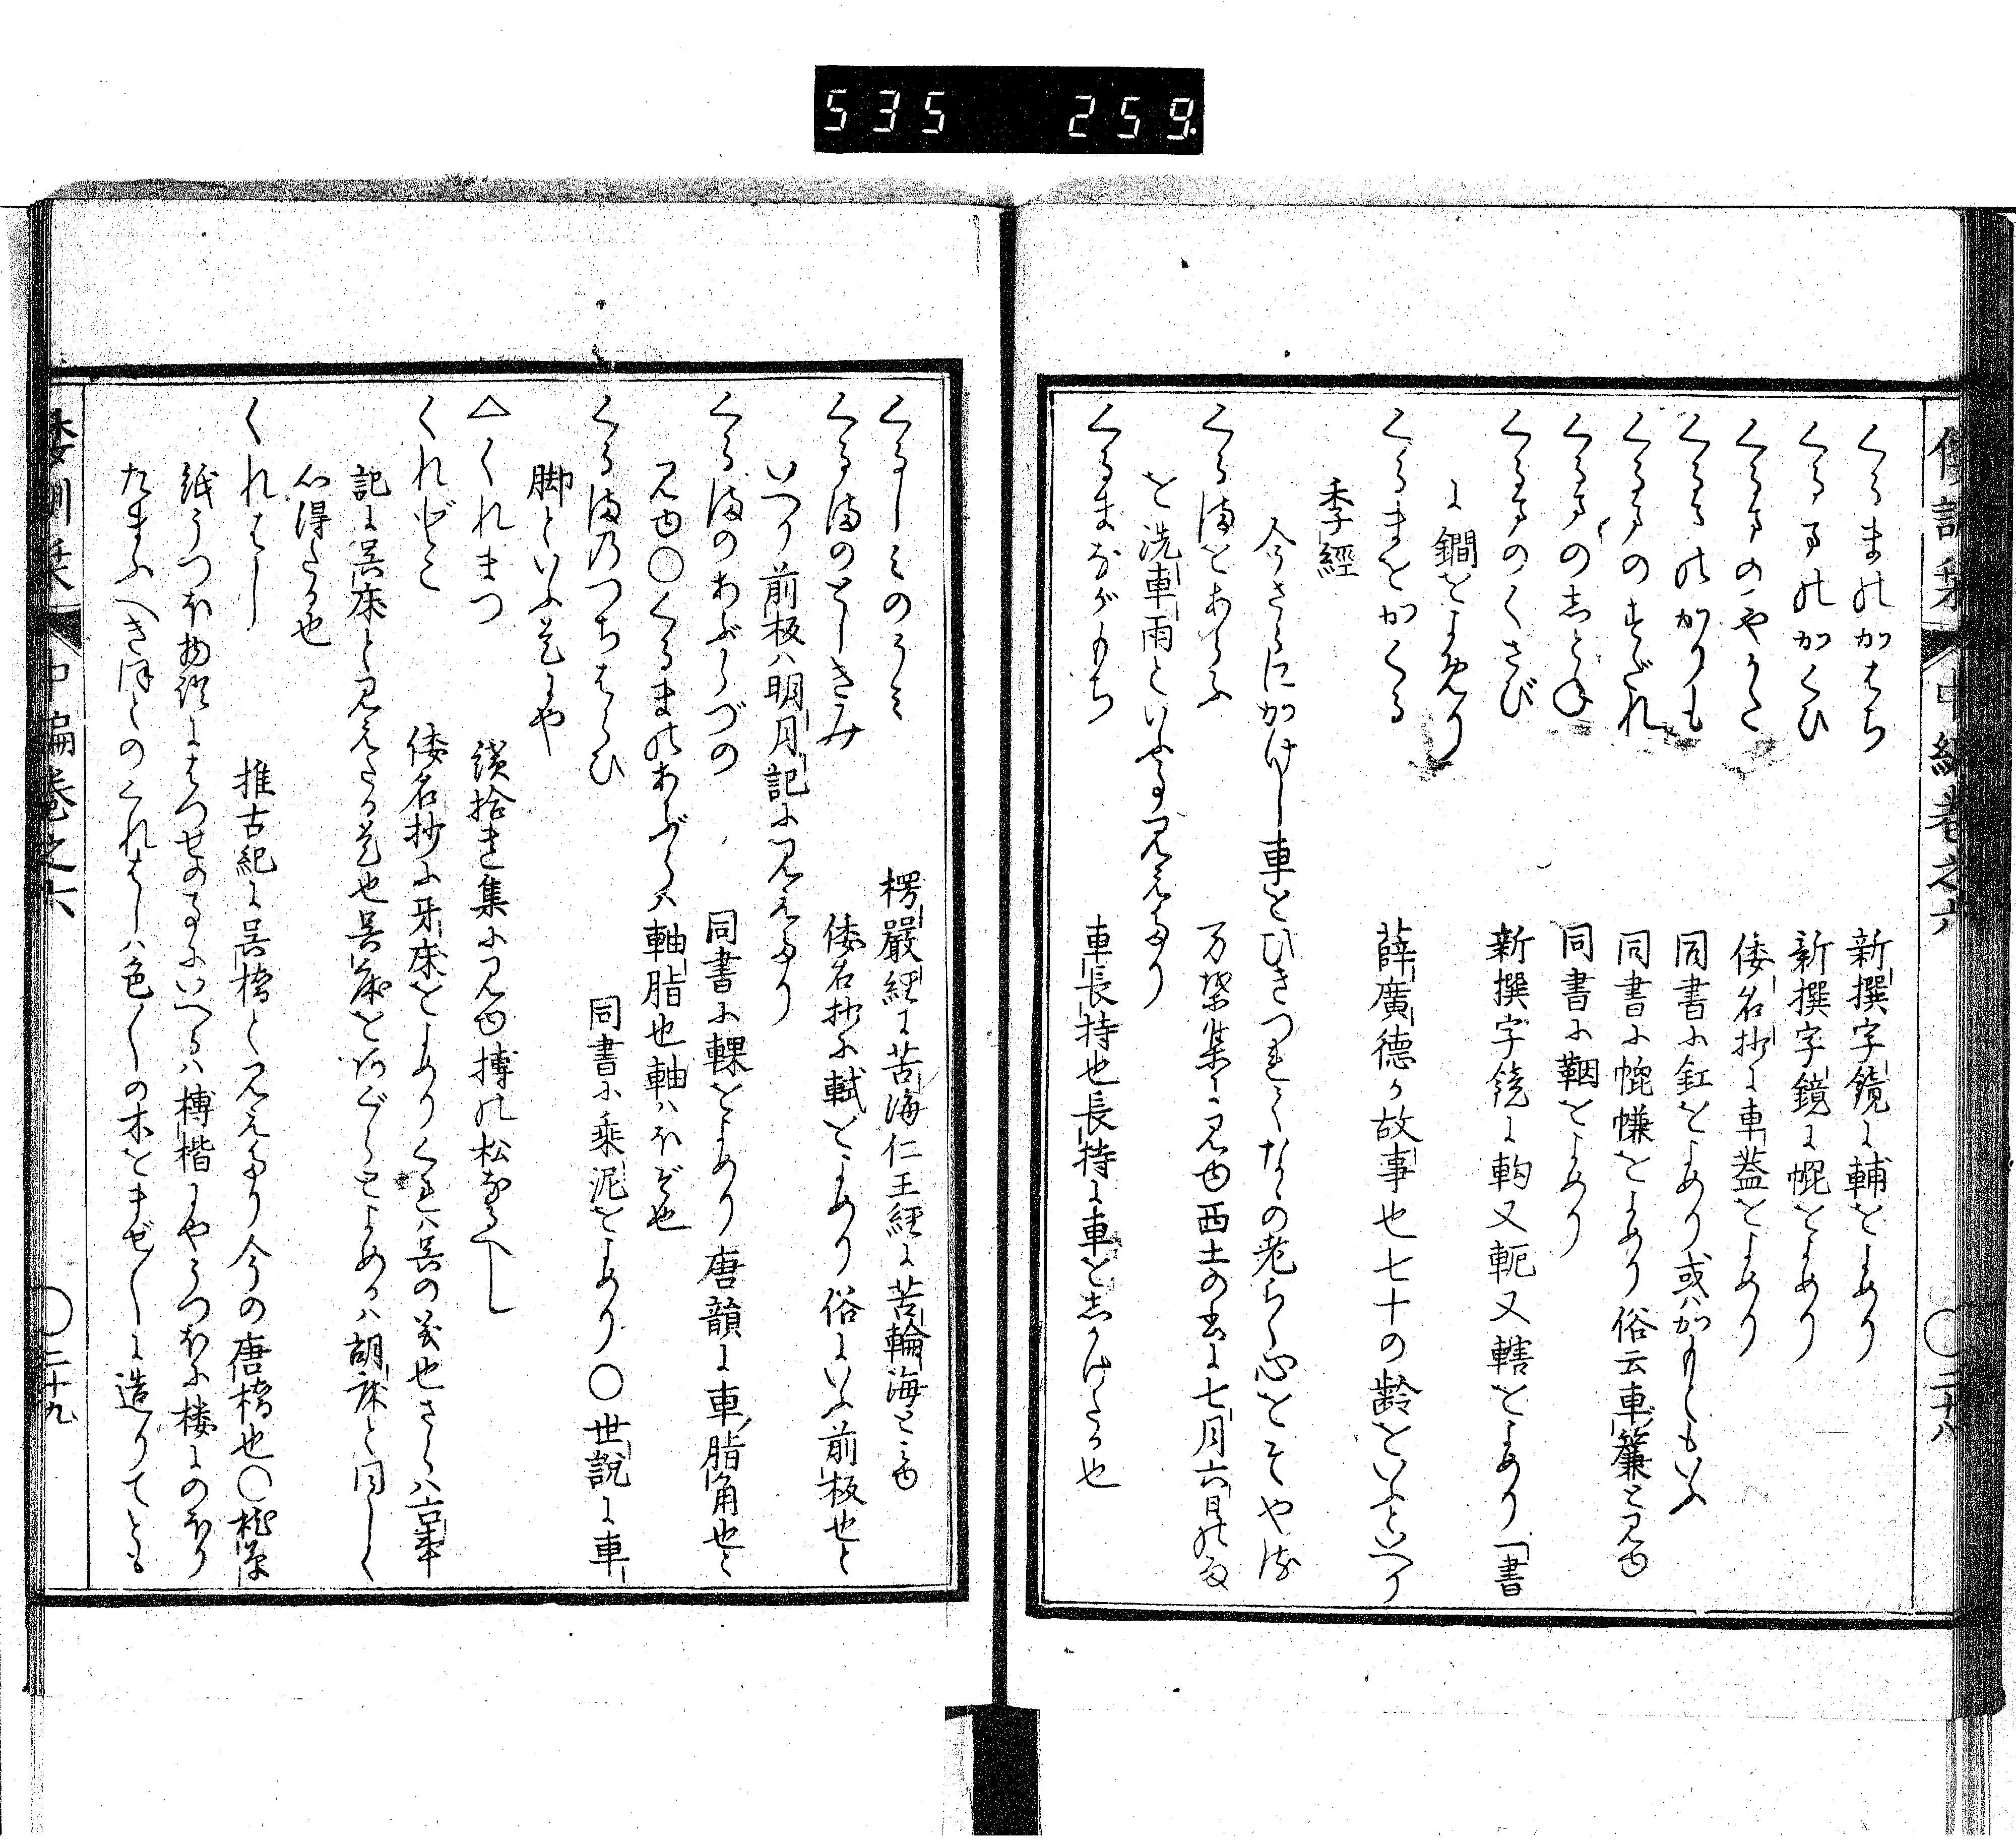 535 259.
倭訓栞 中編卷之六 ○二十八
くるまのかはち 新撰字鏡に輔をよめり
くるまのかくひ 新撰字鏡に軶をよめり
くるまのやかた 倭名抄に車蓋をよめり
くるまのかりも 同書に釭をよめり或ハかもともいふ
くるまのすだれ 同書に㡙㡘をよめり俗云車簾と見ゆ
くるまのしとね 同書に鞇をよめり
くるまのくさび 新撰字鏡に軥又軛又轄をよめり「書
に鐧をよめり
くるまをかくる 薛廣德か故事也七十の齡をいふといへり
季經
今さらにかけし車をひきつれてなにの老らく心をそやる
くるまをあらふ 万葉集に見ゆ西土の書に七月六日の雨
を洗車雨といふ事見えたり
くるまながもち 車長持也長持に車をしかけたる也
くるしみのうみ 楞嚴經に苦海仁王經に苦輪海とみゆ
くるまのとしきみ 倭名抄に軾をよめり俗にいふ前板也と
いへり前板ハ明月記に見えたり
くるまのあぶらづの 同書に輠をよめり唐韻に車脂角也と
見ゆ○くるまのあぶらハ軸脂也軸ハほぞ也
くるまのつちはらひ 同書に乗泥をよめり○世說に車
脚といふ是にや
△くれまつ 續拾遺集に見ゆ榑の松なるへし
くれどこ 倭名抄に牙床をよめりくれハ呉の義也さらハ吉事
記に呉床と見えたる是也呉床をあぐらとよめるハ胡床と同しく
心得たる也
くれはし 推古紀に呉橋と見えたり今の唐橋也○枕草
紙うつほ物語にはつせの事にいへるハ榑楷にやうつほに楼にのほり
たまふへきほとのくれはしハ色〳〵の木をませ〳〵に造りてとも
倭訓栞 中編卷之六 ○二十九